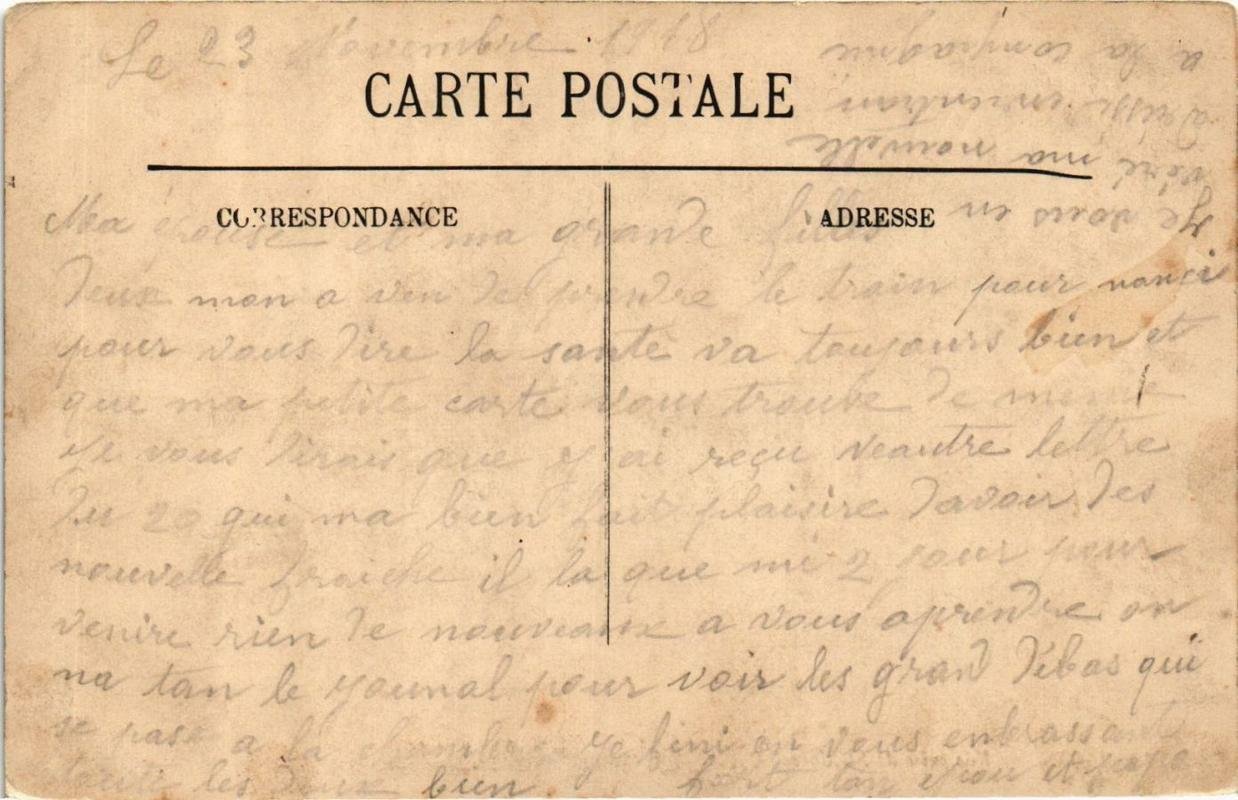 Le 23 Novembre 1918
CARTE POSTALE
CORRESPONDANCE
ADRESSE
Ma épouse et ma grande fille
deux mon a ven de prendre le train pour nanci
pour vous dire la sante va toujours bien et
que ma petite carte vous trouve de meme
Je vous dirais que y ai reçu veautre lettre
du 20 qui ma bien fait plaisire davoir des
nouvelle fraiche il la que mi 2 jour pour
venire rien de nouveaux a vous aprendre on
na tan le younal pour voir les grand débas qui
se pase a la chambre ye fini en vous enbrassant
toute les deux bien fort ton et papa
Je vous en
ma nouvelle
a la compagnie